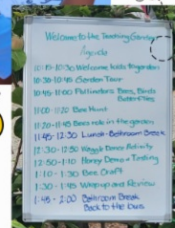 Welcome to the Teaching Garden
Agenda
10:15-10:30 Welcome to the garden
10:30-10:45 Garden Tour
10:45-11:00 Pollinators: Bees, Birds
Butterflies
11:00-11:20 Bee Hunt
11:20-11:45 Bees role in the garden
11:45-12:30 Lunch-Bathroom Break
12:30-12:50 Waggle Dance Activity
12:50-1:10 Honey Demo + Tasting
1:10-1:30 Bee Craft
1:30-1:45 Wrap up and Review
1:45-2:00 Bathroom Break
Back to the bus